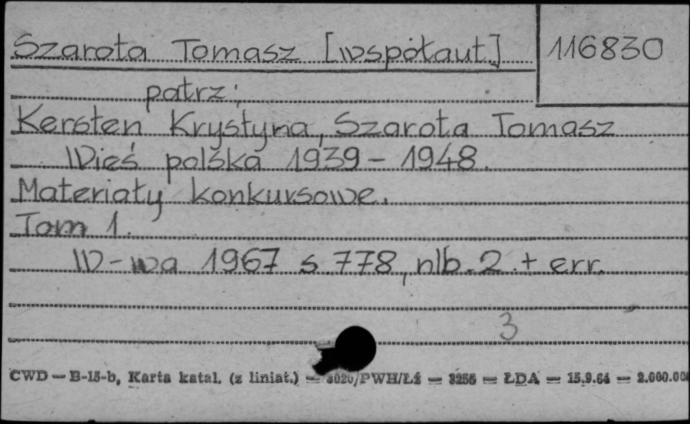 Szarota Tomasz [współaut.] 116830
patrz:
Kersten Krystyna, Szarota Tomasz
Wieś polska 1939-1948.
Materiały konkursowe.
Tom 1.
W-wa 1967 s 778, nlb. 2 + err.
3
CWD — B-15-b, Karta katal. (z liniat.) — /PWH/Łś — 3255 — ŁDA — 15.9.64 — 2.000.00